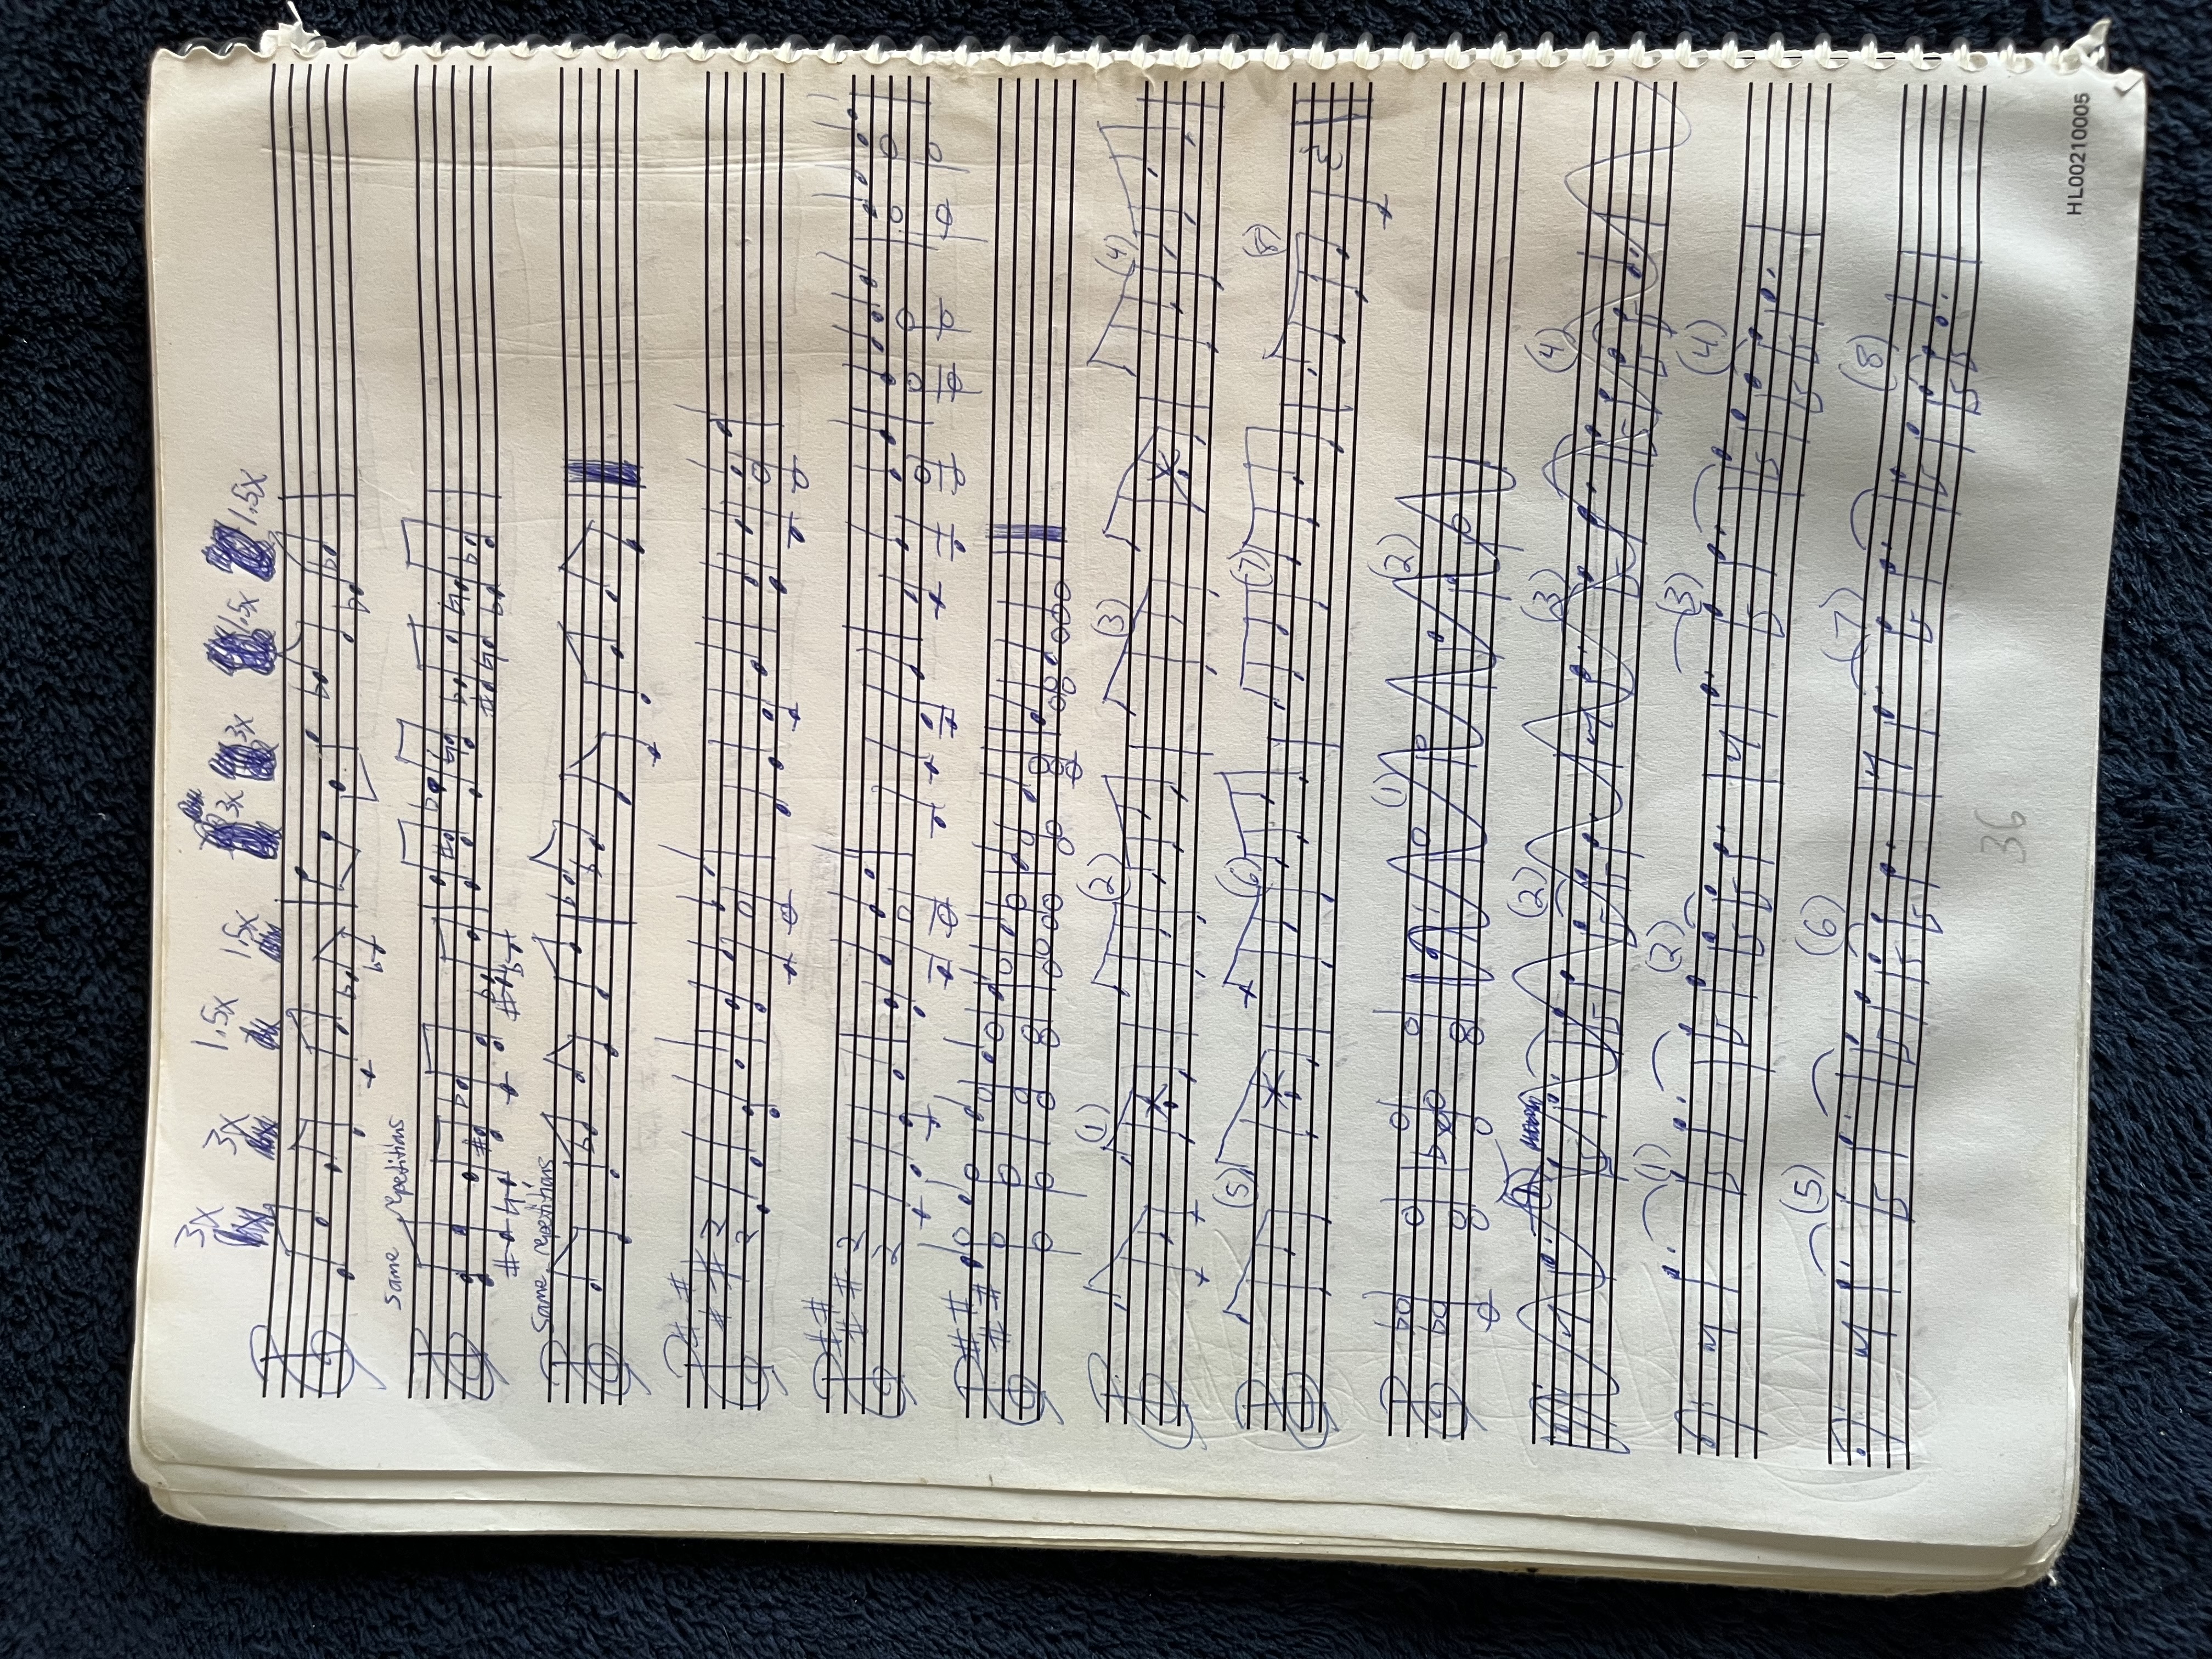 3x 3x 1.5x 1.5x 3x 3x 1.5x 1.5x
Same repetitions
Same repetitions
2
2
2
2
(1) (2) (3) (4)
(5) (6) (7) (8)
(1) (2)
(2) (3) (4)
(1) (2) (3) (4)
(5) (6) (7) (8)
36
HL00210005